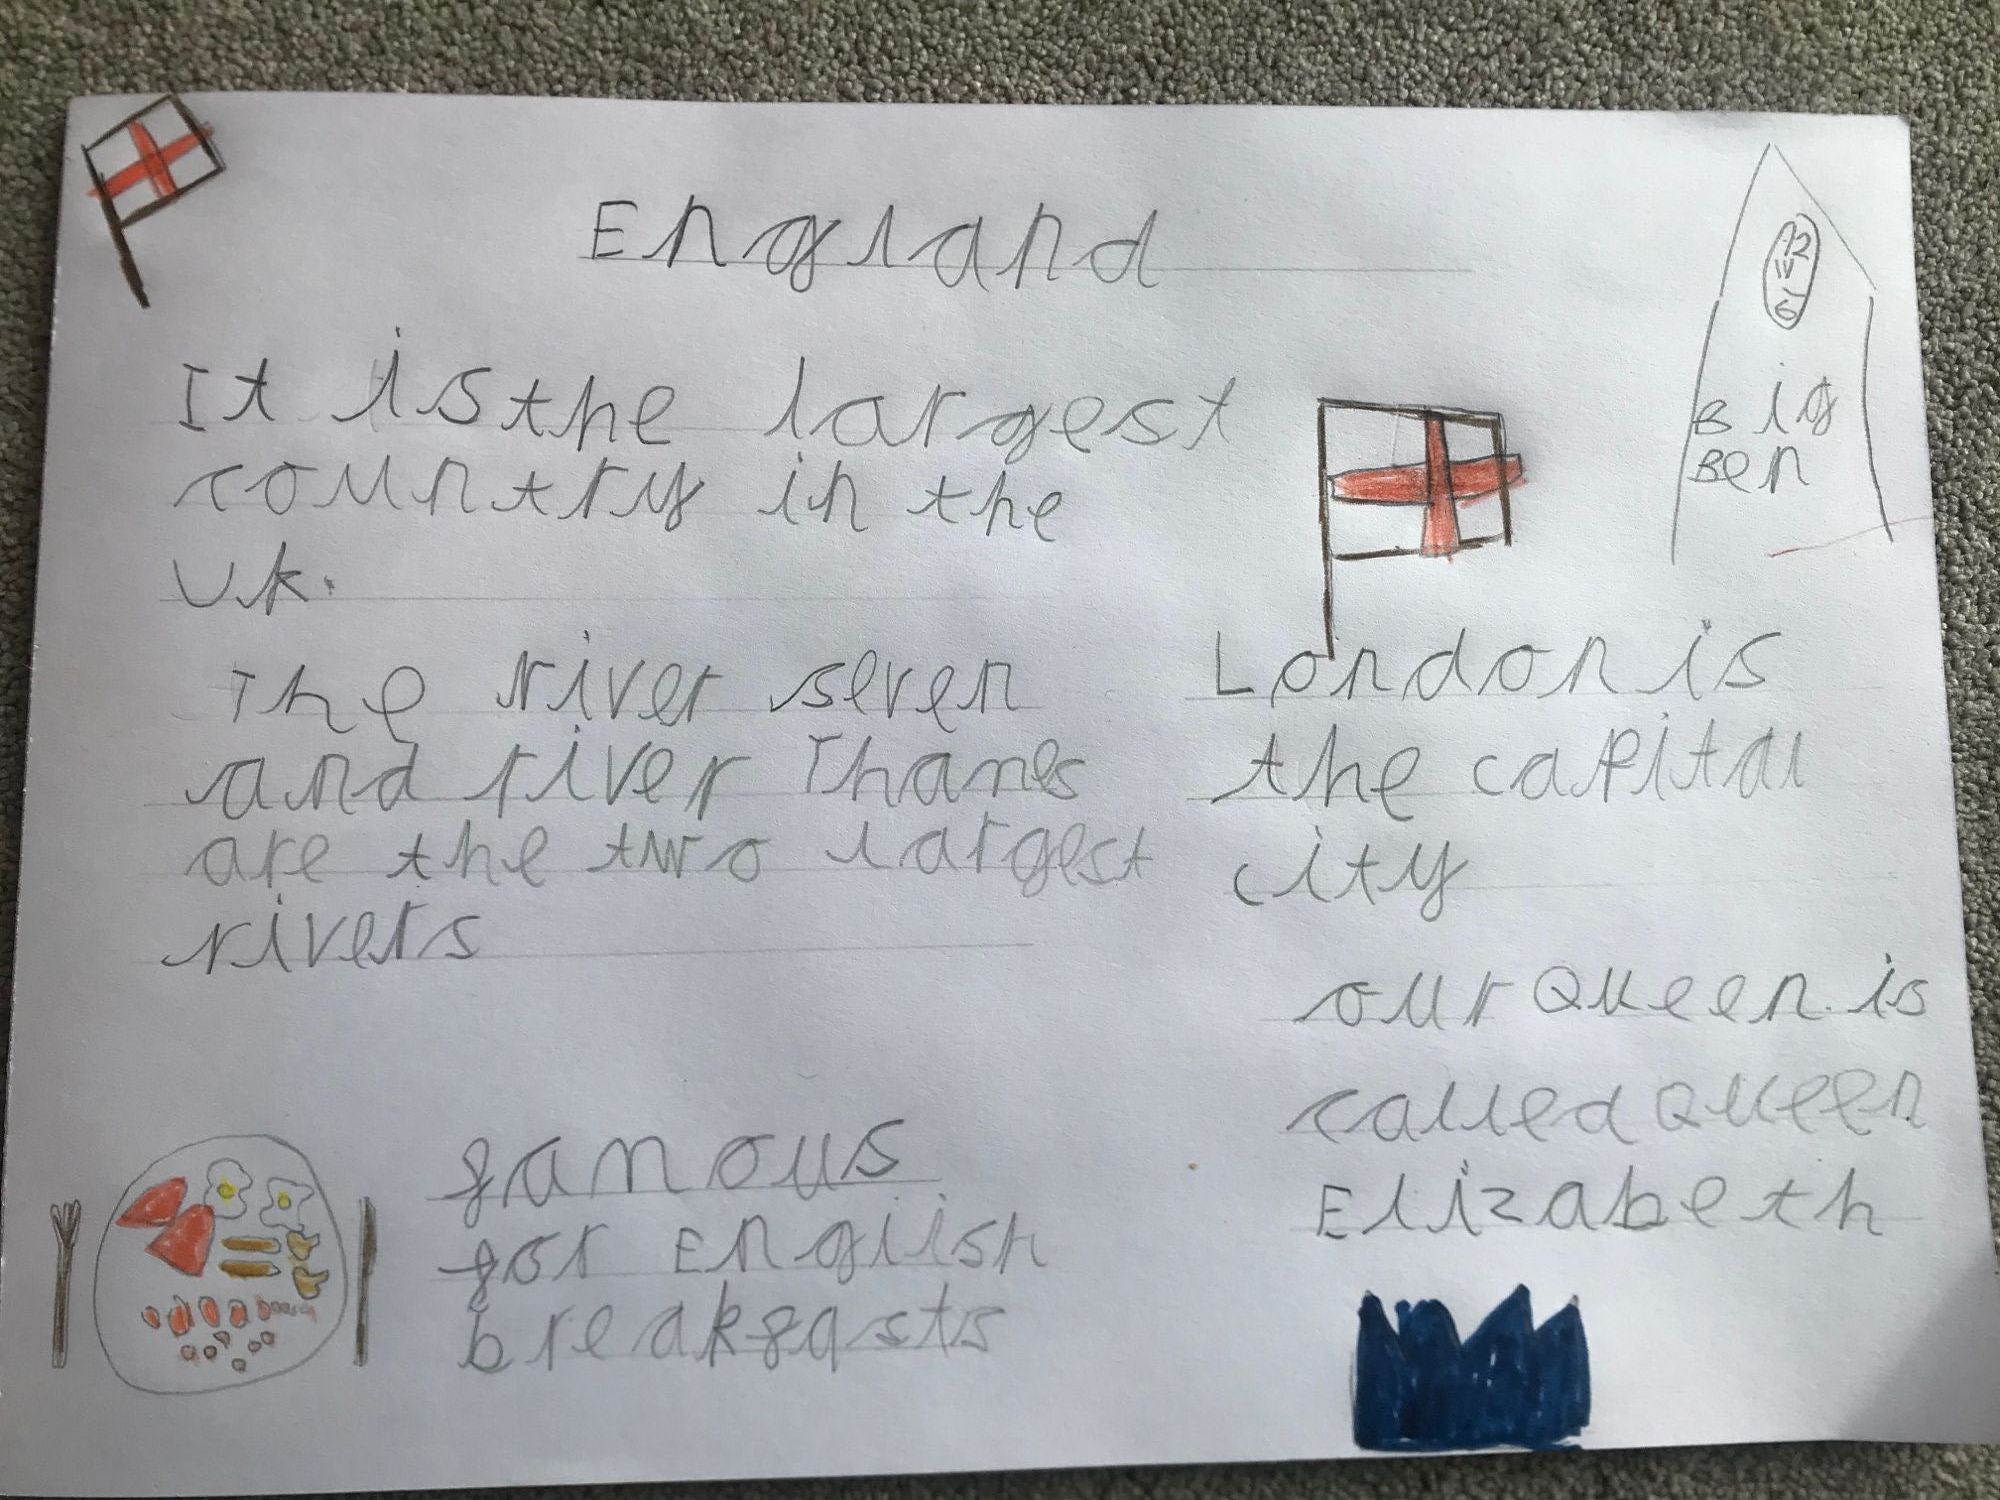 England
It is the largest
country in the
Uk.
The river seven
and river Thames
are the two largest
rivers
12
6
Big
Ben
London is
the capital
city
our Queen is
called Queen
Elizabeth
famous
for English
breakfasts